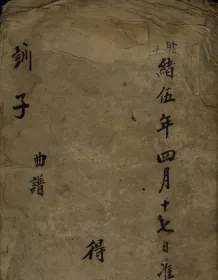 緒伍年四月十七日准
訓子
曲譜
得